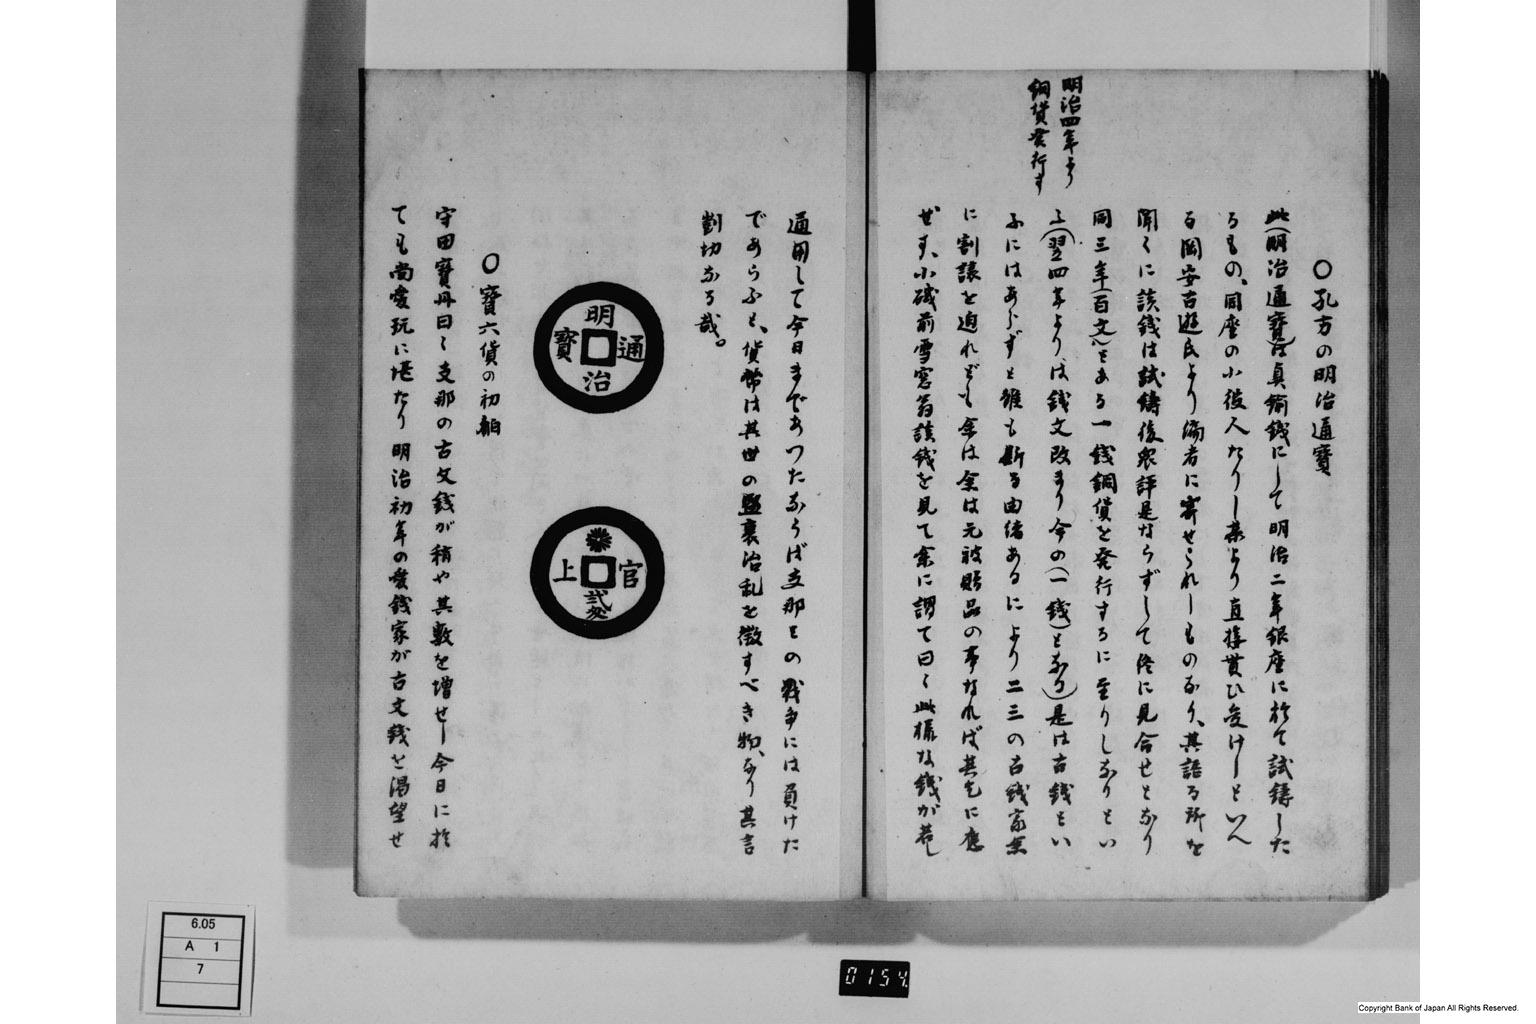 明治四年より
銅貨発行す
〇孔方の明治通寳
此(明治通寳)は真鍮銭にして明治二年銀座に於て試鋳した
るもの、同座の小役人たりし某より直接貰ひ受けしといへ
る岡安古遊氏より編者に寄せられしものなり、其語る所を
聞くに該銭は試鋳後衆評是ならずして終に見合せとなり
同三年(百文)とある一銭銅貨を発行するに至りしなりとい
ふ(翌四年より、は銭文改まり今の(一銭)となり)是は古銭とい
ふにはあらずと雖も斯る由緒あるにより二三の古銭家
に割譲を迫れども余は元被贈品の事なれば其乞に應
ぜず、小磯前雪窓翁該銭を見て余に謂て曰く此様な銭が若し
通用して今日まであつたならば支那との戦争には負けた
であらふと、貨幣は其世の盛衰治乱を徴すべき物なり其言
剴切なる哉。
明治通寳
官上弐
〇寳六貨の初舶
守田寳丹曰く支那の古文銭が稍や其数を増せし今日に於
ても尚愛玩に堪たり明治初年の愛銭家が古文銭を渇望せ
6.05
A 1
7
0154
Copyright Bank of Japan All Rights Reserved.